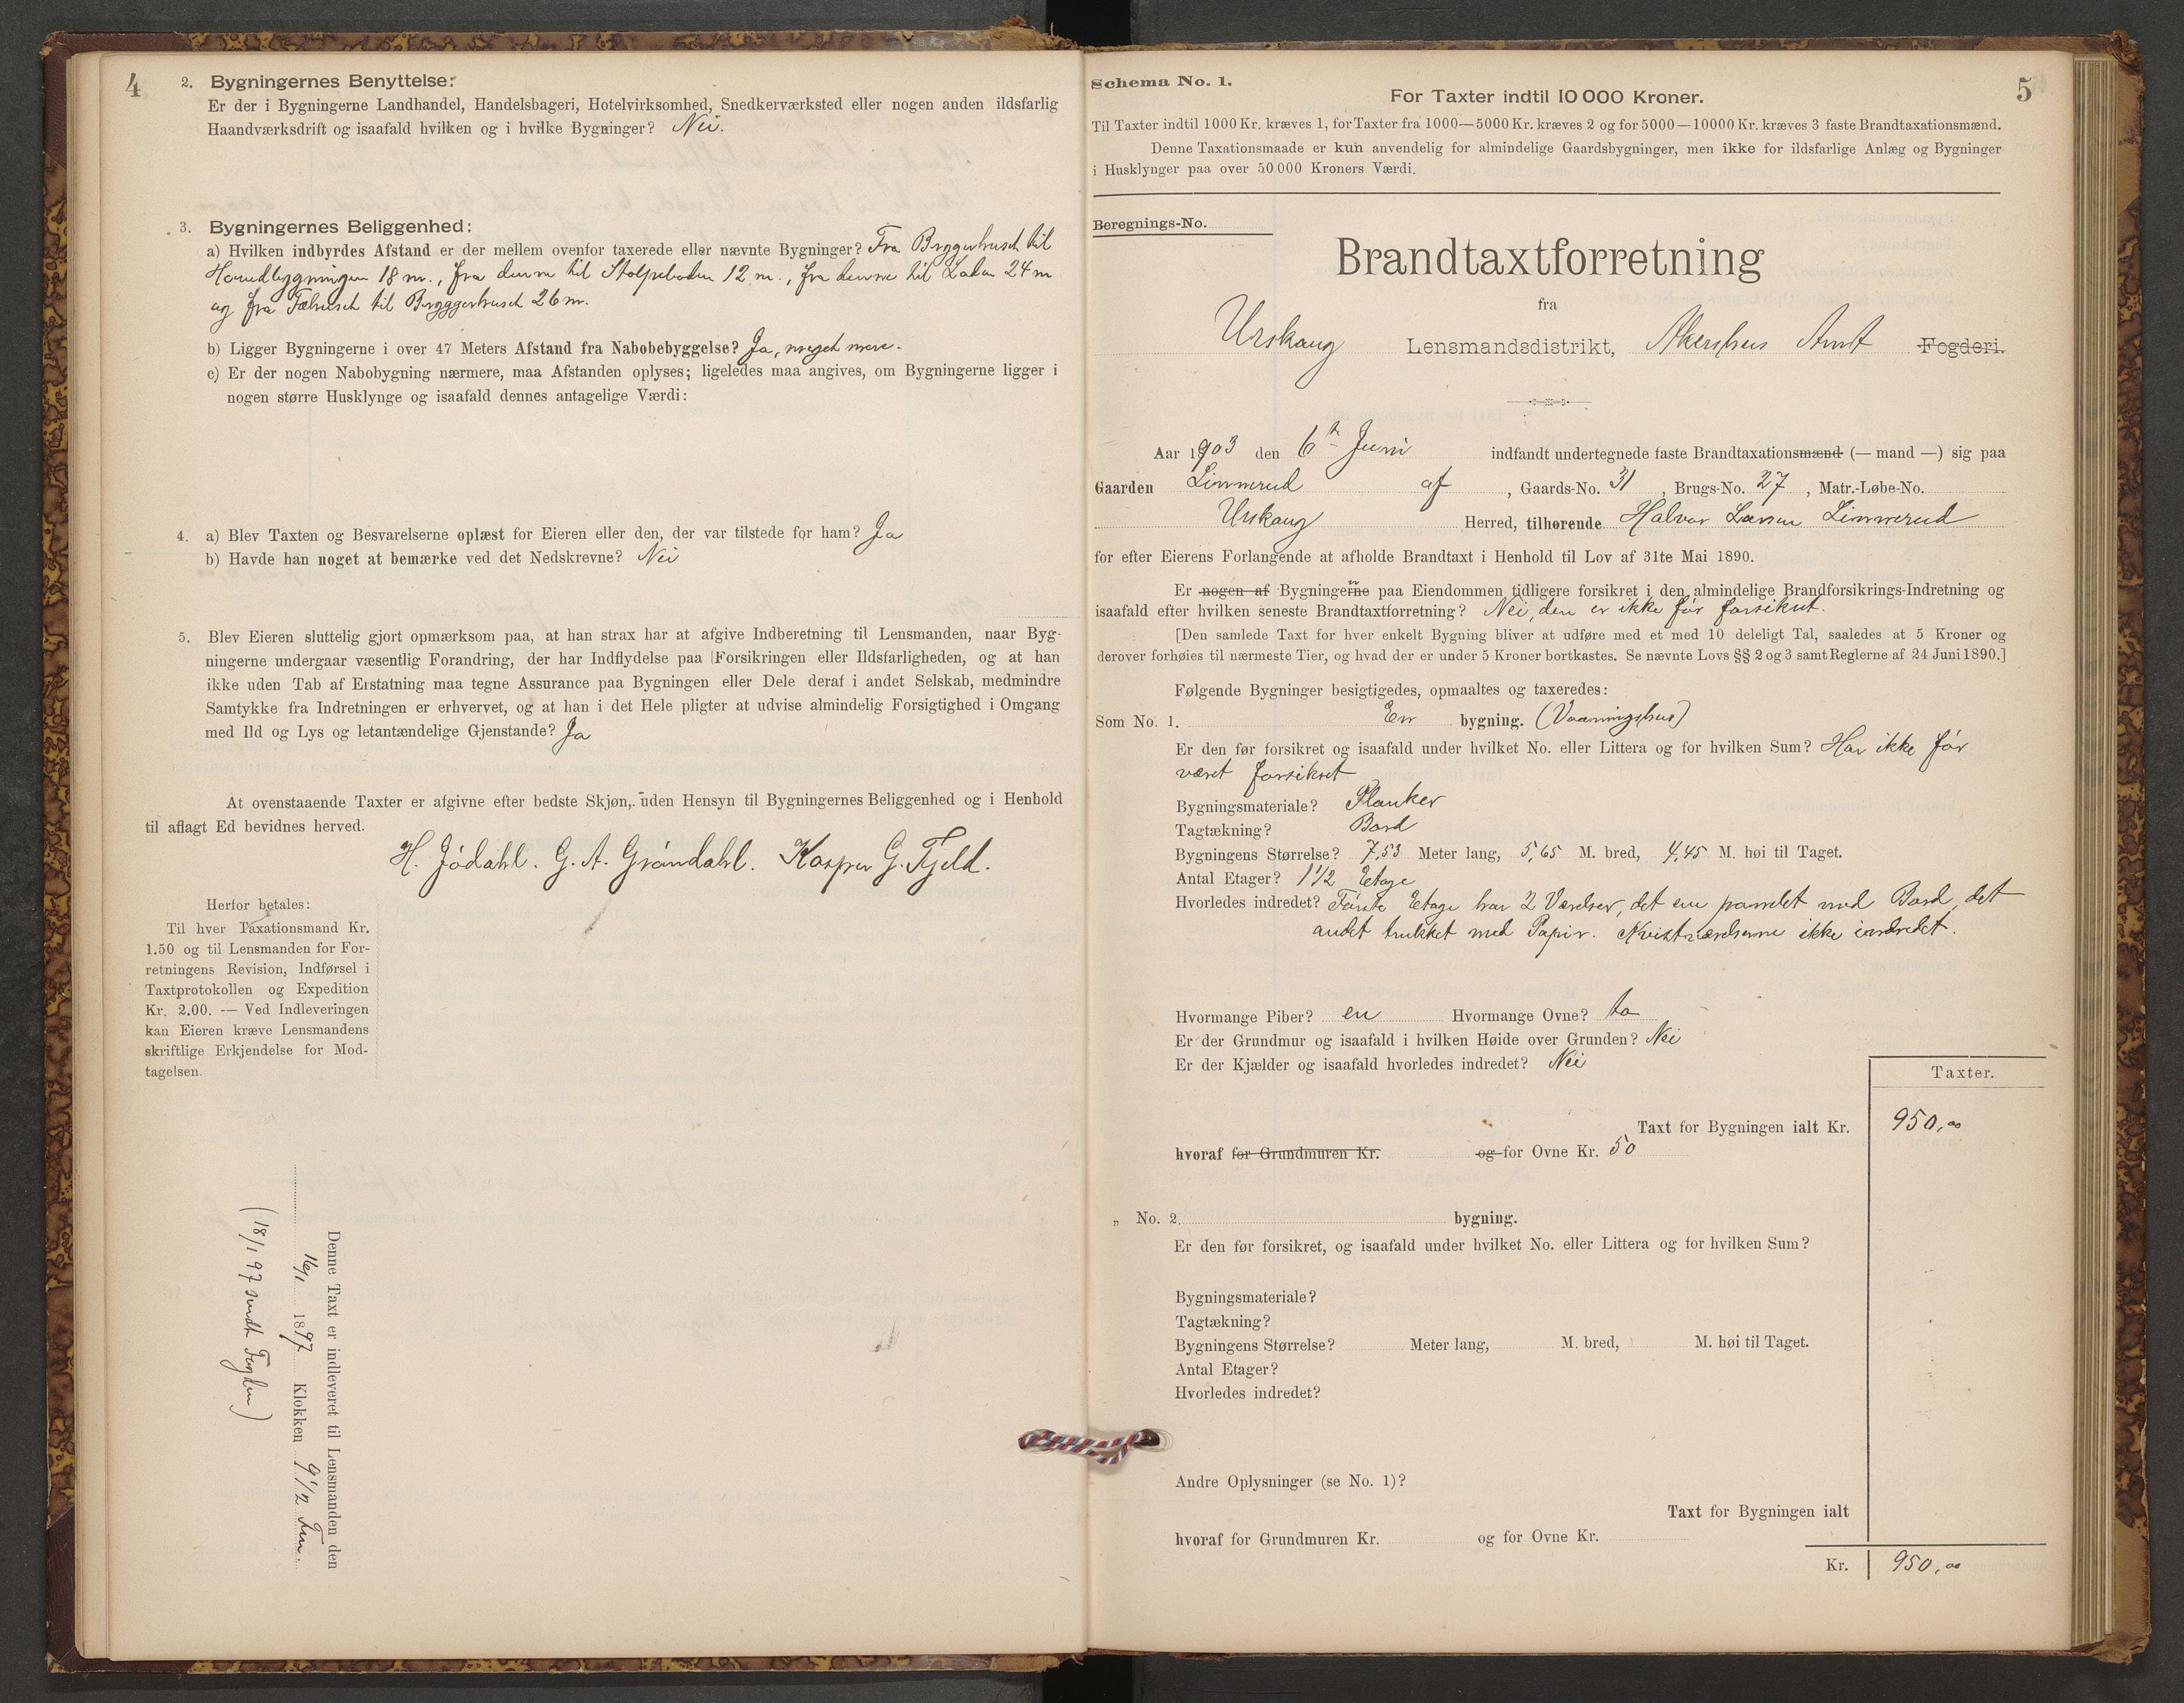 4
2. Bygningernes Benyttelse:
Er der i Bygningerne Landhandel, Handelsbageri, Hotelvirksomhed, Snedkerværksted eller nogen anden ildsfarlig
Haandværksdrift og isaafald hvilken og i hvilke Bygninger? Nei.
3. Bygningernes Beliggenhed:
a) Hvilken indbyrdes Afstand er der mellem ovenfor taxerede eller nævnte Bygninger? Fra Bryggerhuset til
Hovedbygningen 18 m., fra denne til Stolpeboden 12 m., fra denne til Laden 24 m
og fra Fæhuset til Bryggerhuset 26 m.
b) Ligger Bygningerne i over 47 Meters Afstand fra Nabobebyggelse? Ja, meget mere.
c) Er der nogen Nabobygning nærmere, maa Afstanden oplyses; ligeledes maa angives, om Bygningerne ligger i
nogen større Husklynge og isaafald dennes antagelige Værdi:
4. a) Blev Taxten og Besvarelserne oplæst for Eieren eller den, der var tilstede for ham? Ja
b) Havde han noget at bemærke ved det Nedskrevne? Nei
5. Blev Eieren sluttelig gjort opmærksom paa, at han strax har at afgive Indberetning til Lensmanden, naar Byg-
ningerne undergaar væsentlig Forandring, der har Indflydelse paa Forsikringen eller Ildsfarligheden, og at han
ikke uden Tab af Erstatning maa tegne Assurance paa Bygningen eller Dele deraf i andet Selskab, medmindre
Samtykke fra Indretningen er erhvervet, og at han i det Hele pligter at udvise almindelig Forsigtighed i Omgang
med Ild og Lys og letantændelige Gjenstande? Ja
At ovenstaaende Taxter er afgivne efter bedste Skjøn, uden Hensyn til Bygningernes Beliggenhed og i Henhold
til aflagt Ed bevidnes herved.
H. Jödahl. G. A. Gröndahl. Kasper G. Fjeld.
Herfor betales:
Til hver Taxationsmand Kr.
1.50 og til Lensmanden for For-
retningens Revision, Indførsel i
Taxtprotokollen og Expedition
Kr. 2.00. — Ved Indleveringen
kan Eieren kræve Lensmandens
skriftlige Erkjendelse for Mod-
tagelsen.
Denne Taxt er indleveret til Lensmanden den
16/1 1897 Klokken 9 1/2 Fm.
(18/1 97 sendt Fogden)
Schema No. 1.
5
For Taxter indtil 10 000 Kroner.
Til Taxter indtil 1000 Kr. kræves 1, for Taxter fra 1000—5000 Kr. kræves 2 og for 5000—10000 Kr. kræves 3 faste Brandtaxationsmænd.
Denne Taxationsmaade er kun anvendelig for almindelige Gaardsbygninger, men ikke for ildsfarlige Anlæg og Bygninger
i Husklynger paa over 50 000 Kroners Værdi.
Beregnings-No.
Brandtaxtforretning
fra
Urskaug Lensmandsdistrikt, Akershus Amt Fogderi.
Aar 1903 den 6te Juni indfandt undertegnede faste Brandtaxationsmænd (— mand —) sig paa
Gaarden Limmerud af , Gaards-No. 31, Brugs-No. 27, Matr.-Løbe-No.
Urskaug Herred, tilhørende Halvor Larsen Limmerud
for efter Eierens Forlangende at afholde Brandtaxt i Henhold til Lov af 31te Mai 1890.
Er nogen af Bygningerne paa Eiendommen tidligere forsikret i den almindelige Brandforsikrings-Indretning og
isaafald efter hvilken seneste Brandtaxtforretning? Nei, den er ikke før forsikret.
[Den samlede Taxt for hver enkelt Bygning bliver at udføre med et med 10 deleligt Tal, saaledes at 5 Kroner og
derover forhøies til nærmeste Tier, og hvad der er under 5 Kroner bortkastes. Se nævnte Lovs §§ 2 og 3 samt Reglerne af 24 Juni 1890.]
Følgende Bygninger besigtigedes, opmaaltes og taxeredes:
Som No. 1. En bygning. (Vaaningshus)
Er den før forsikret og isaafald under hvilket No. eller Littera og for hvilken Sum? Har ikke før
været forsikret
Bygningsmateriale? Planker
Tagtækning? Bord
Bygningens Størrelse? 7,53 Meter lang, 5,65 M. bred, 4,45 M. høi til Taget.
Antal Etager? 1 1/2 Etage
Hvorledes indredet? Første Etage har 2 Værelser, det ene panelet med Bord, det
andet trukket med Papir. Kvistværelserne ikke indredet.
Hvormange Piber? en Hvormange Ovne? to
Er der Grundmur og isaafald i hvilken Høide over Grunden? Nei
Er der Kjælder og isaafald hvorledes indredet? Nei
Taxter.
Taxt for Bygningen ialt Kr. 950,00
hvoraf for Grundmuren Kr. og for Ovne Kr. 50
„ No. 2. bygning.
Er den før forsikret, og isaafald under hvilket No. eller Littera og for hvilken Sum?
Bygningsmateriale?
Tagtækning?
Bygningens Størrelse? Meter lang, M. bred, M. høi til Taget.
Antal Etager?
Hvorledes indredet?
Andre Oplysninger (se No. 1)?
Taxt for Bygningen ialt
hvoraf for Grundmuren Kr. og for Ovne Kr.
Kr. 950,00